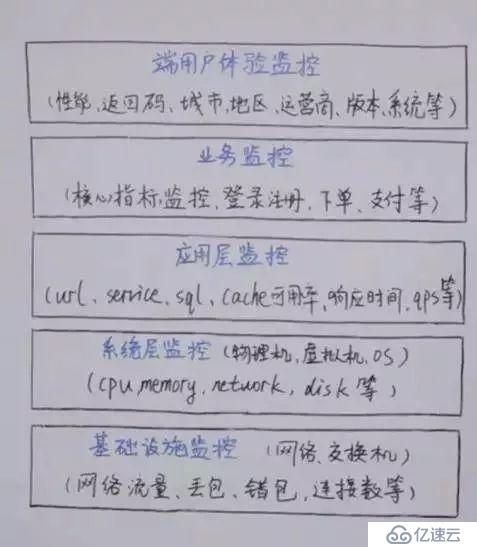 端用户体验监控
(性能、返回码、城市、地区、运营商、版本、系统等)
业务监控
(核心指标监控、登录注册、下单、支付等)
应用层监控
(url、service、sql、cache可用率、响应时间、qps等)
系统层监控 (物理机、虚拟机、OS)
(cpu,memory、network、disk等)
基础设施监控 (网络、交换机)
(网络流量、丢包、错包、连接数等)
亿速云